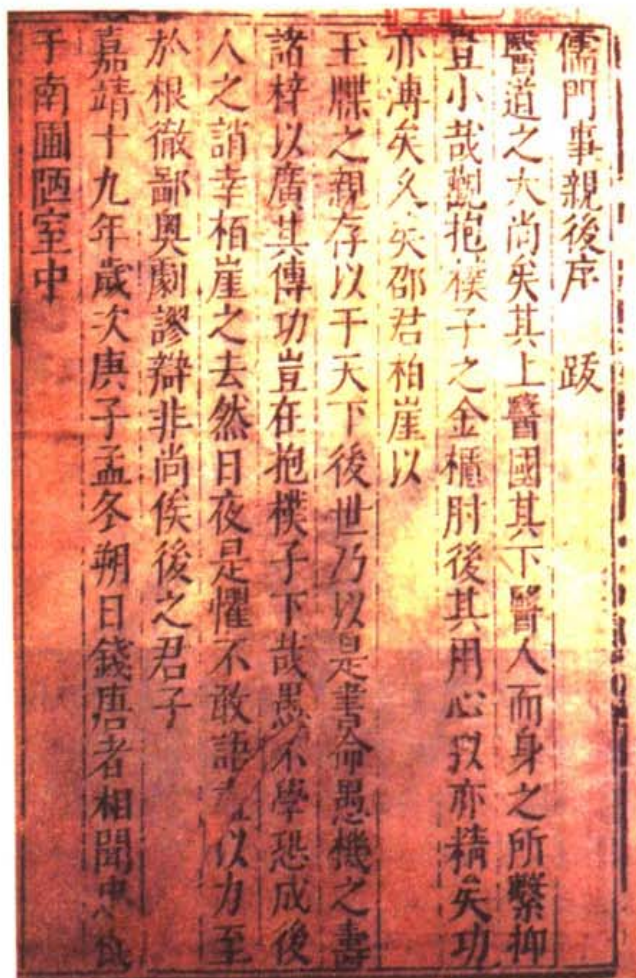 儒門事親後序　跋
醫道之大尚矣其上醫國其下醫人而身之所繫抑
豈小哉觀抱樸子之金櫃肘後其用心亦精矣功
亦溥矣久矣邵君柏崖以
王牒之親存以于天下後世乃以是書命愚機之壽
諸梓以廣其傳功豈在抱樸子下哉愚不學恐成後
人之誚幸柏崖之去然日夜是懼不敢語以力至
於根徹鄙奧劇謬辯非尚俟後之君子
嘉靖十九年歲次庚子孟冬朔日錢唐者相聞忠食
于南圃陋室中